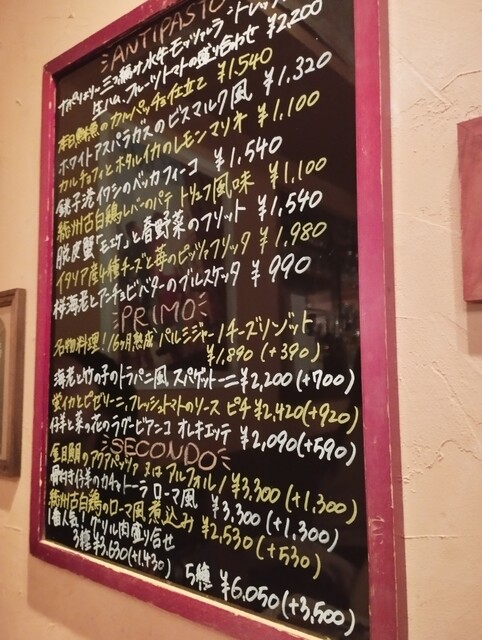 ANTIPASTO
ナポリより 三つ編み 水牛モッツァレラ トレッ
生ハム、フルーツトマトの盛り合わせ ¥2,200
本日鮮魚のカルパッチョ仕立て ¥1,540
ホワイトアスパラガスのビスマルク風 ¥1,320
カルチョフィとホタルイカのレモンマリネ ¥1,100
銚子港イワシのベッカフィーコ ¥1,540
総州古白鶏レバーのパテ トリュフ風味 ¥1,100
脱皮蟹「モエケ」と春野菜のフリット ¥1,540
イタリア産4種チーズと苺のピッツァフリッタ ¥1,980
桜海老とアンチョビバターのブルスケッタ ¥990
PRIMO
名物料理!16ヶ月熟成 パルミジャーノチーズリゾット
¥1,890(+390)
海老と竹の子のトラパニ風 スパゲットーニ ¥2,200(+700)
蛍イカとピゼリーニ、フレッシュトマトのソース ピチ ¥2,420(+920)
仔羊と菜の花のラグービアンコ オレキエッテ ¥2,090(+590)
SECONDO
金目鯛のアクアパッツァ または アルフォルノ ¥3,300(+1,300)
骨付き仔羊のカチャトーラ ローマ風 ¥3,300(+1,300)
総州古白鶏のローマ風煮込み ¥2,530(+530)
1番人気!グリル肉盛り合せ
3種 ¥3,630(+1,430) 5種 ¥6,050(+3,500)